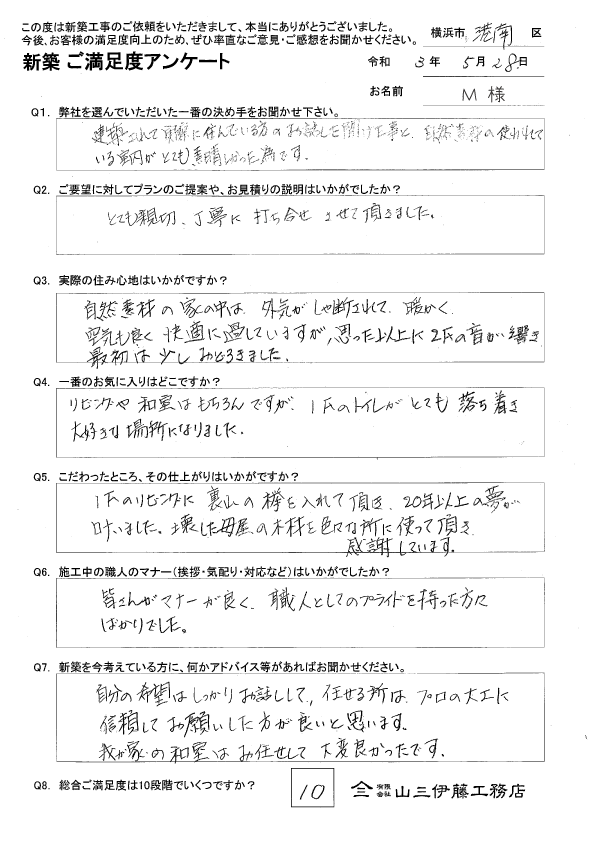 この度は新築工事のご依頼をいただきまして、本当にありがとうございました。
今後、お客様の満足度向上のため、ぜひ率直なご意見・ご感想をお聞かせください。
横浜市 港南 区
新築 ご満足度アンケート
令和 3 年 5 月 28 日
お名前 M 様
Q1. 弊社を選んでいただいた一番の決め手をお聞かせ下さい。
建築されて実際に住んでいる方のお話しを聞けた事と、自然素材の使われて
いる室内がとても素晴しかった為です。
Q2. ご要望に対してプランのご提案や、お見積りの説明はいかがでしたか？
とても親切、丁寧に打ち合せさせて頂きました。
Q3. 実際の住み心地はいかがですか？
自然素材の家の中は、外気がしゃ断されて、暖かく
空気も良く快適に過していますが、思った以上に2Fの音が響き
最初は少しおどろきました。
Q4. 一番のお気に入りはどこですか？
リビングや和室はもちろんですが、1Fのトイレがとても落ち着き
大好きな場所になりました。
Q5. こだわったところ、その仕上がりはいかがですか？
1Fのリビングに裏山の欅を入れて頂き、20年以上の夢が
叶いました。壊した母屋の木材を色々な所に使って頂き
感謝しています。
Q6. 施工中の職人のマナー(挨拶・気配り・対応など)はいかがでしたか？
皆さんがマナーが良く、職人としてのプライドを持った方々
ばかりでした。
Q7. 新築を今考えている方に、何かアドバイス等があればお聞かせください。
自分の希望はしっかりお話しして、任せる所は、プロの大工に
信頼してお願いした方が良いと思います。
我が家の和室はお任せして大変良かったです。
Q8. 総合ご満足度は10段階でいくつですか？
10
有限会社 山三伊藤工務店